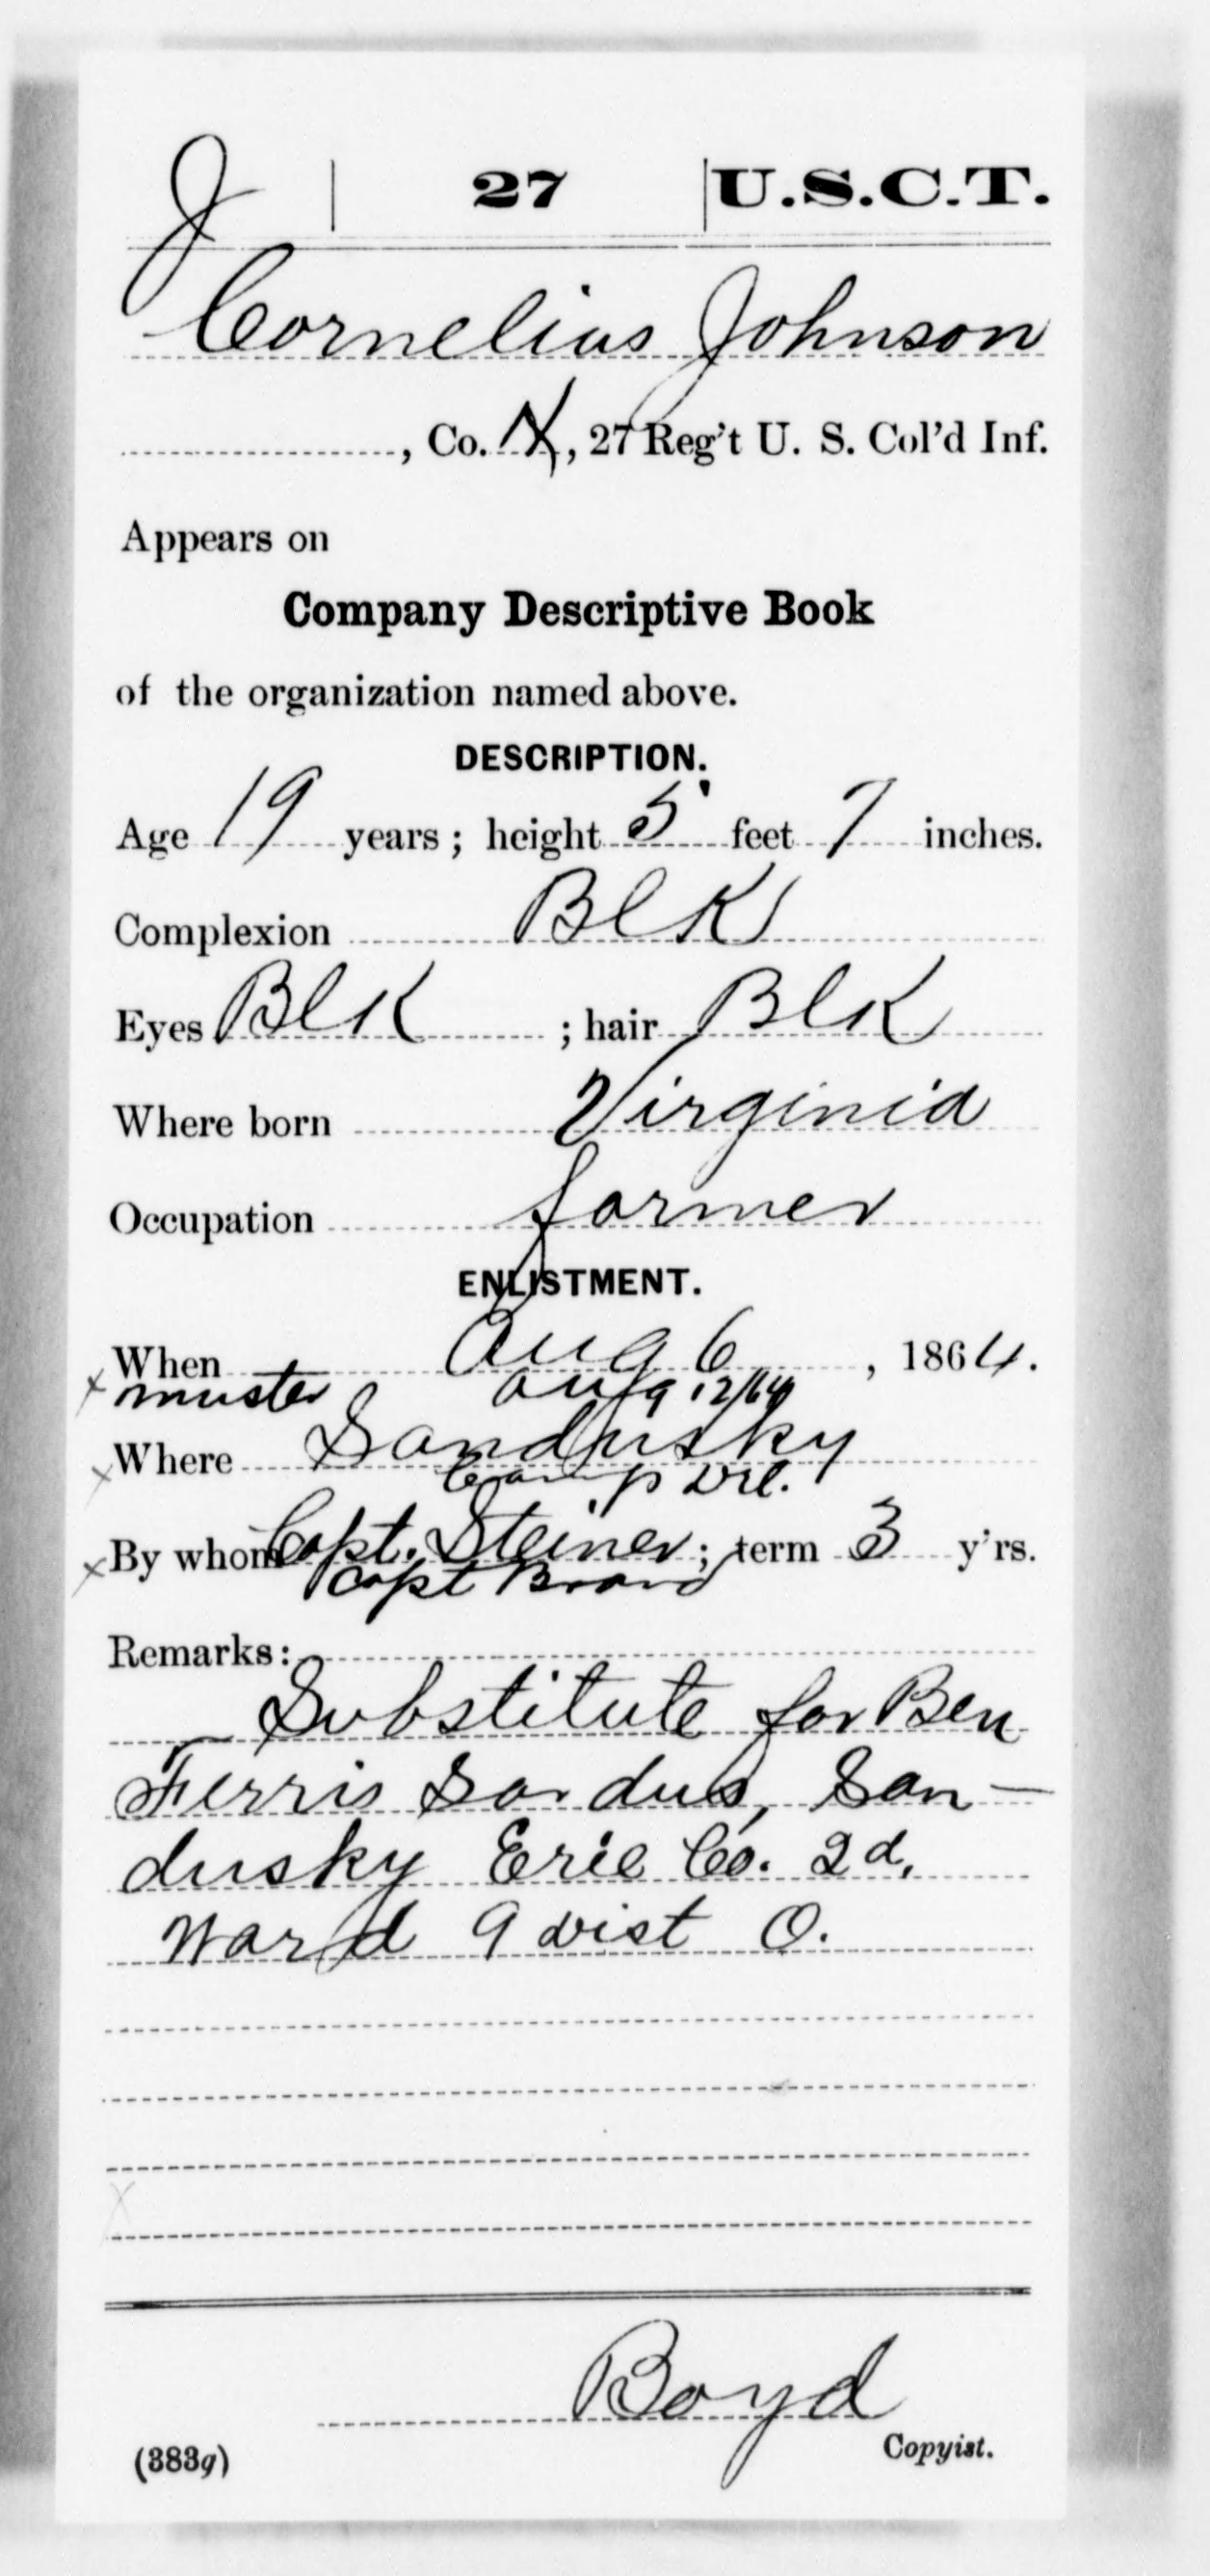 J | 27 | U.S.C.T.
Cornelius Johnson
, Co. K, 27 Reg't U. S. Col'd Inf.
Appears on
Company Descriptive Book
of the organization named above.
DESCRIPTION.
Age 19 years; height 5 feet 7 inches.
Complexion Blk
Eyes Blk ; hair Blk
Where born Virginia
Occupation farmer
ENLISTMENT.
When Aug 6, 1864.
x muster Aug 12/64
x Where Sandusky
Camp Del.
x By whom Capt. Steiner; term 3 y'rs.
Capt Brand
Remarks:
Substitute for Ben
Ferris Sandus, San-
dusky Erie Co. 2d,
Ward 9 Dist O.
x
Boyd
Copyist.
(383g)